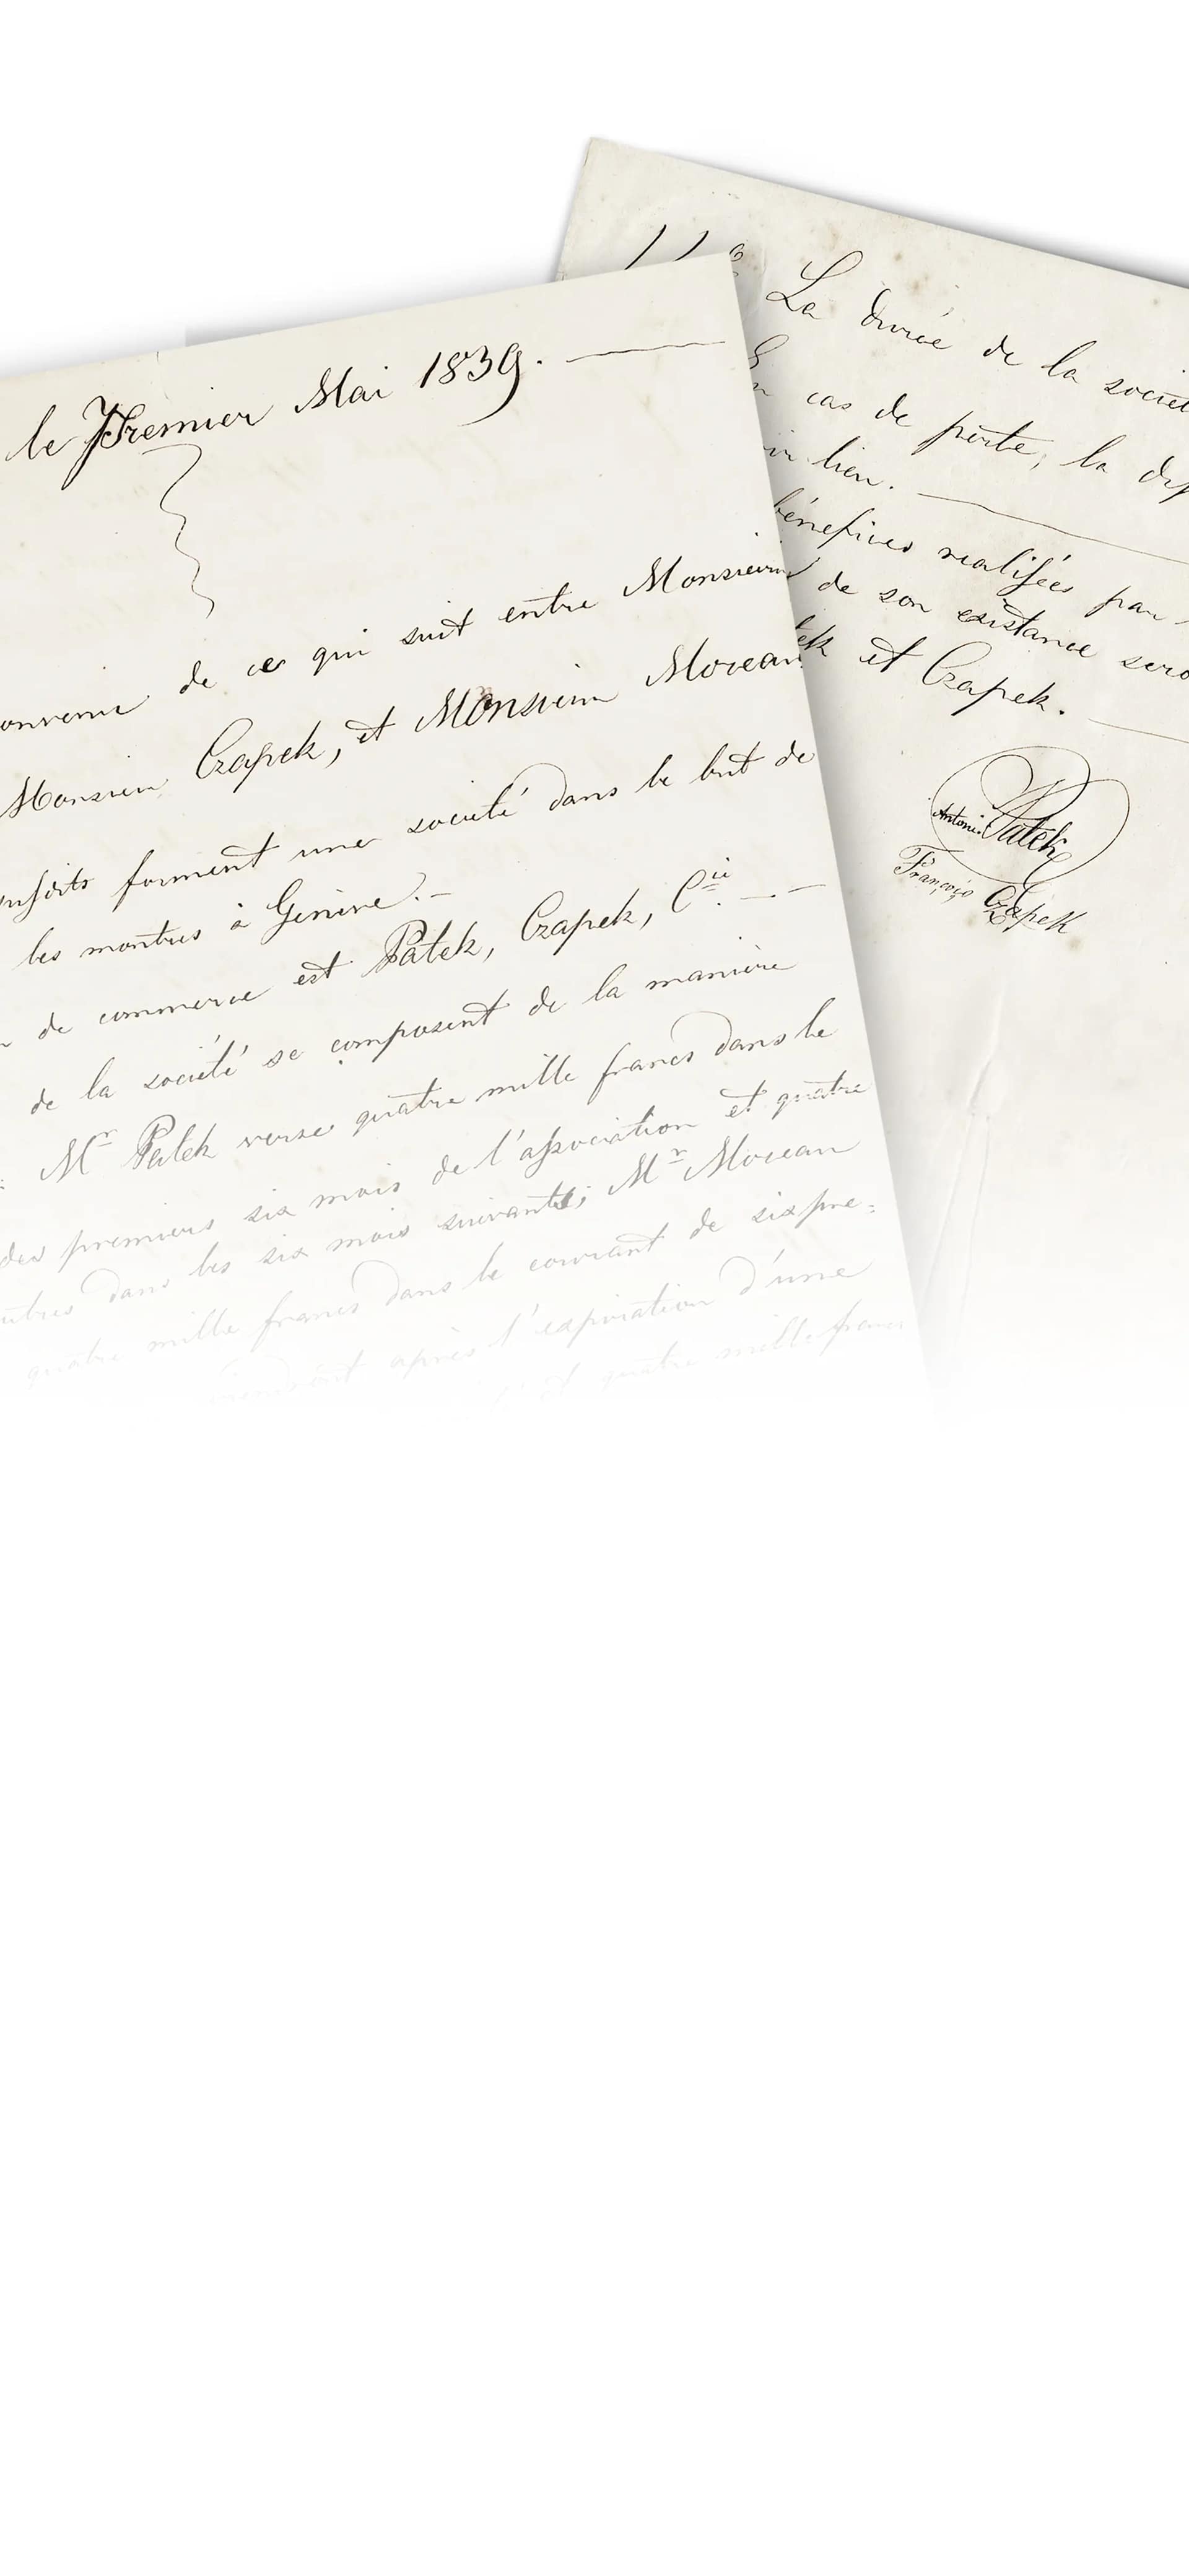 le Premier Mai 1839.
de ce qui suit entre Monsieur
Monsieur Czapek, et Monsieur Moreau
forment une société dans le but de
les montres à Genève.
de commerce est Patek, Czapek, Cie.
de la société se composent de la manière
Mr Patek verse quatre mille francs dans le
des premiers six mois de l'association et quatre
dans les six mois suivants; Mr Moreau
quatre mille francs dans le courant de six pre=
après l'expiration d'une
quatre mille francs
La durée de la société
cas de perte, la
lieu.
bénéfices realisées par
de son existance
et Czapek.
Antoni Patek
François Czapek